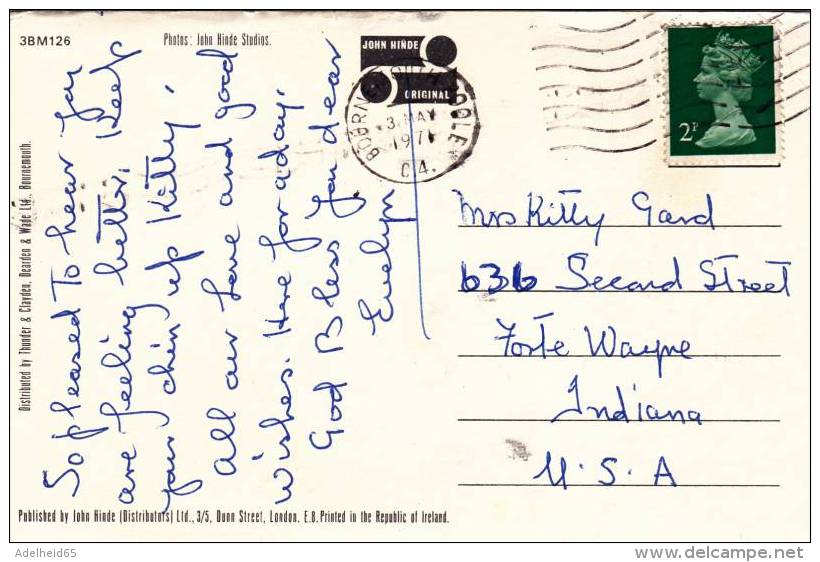 3BM126
Photos: John Hinde Studios.
JOHN HINDE
ORIGINAL
BOURNEMOUTH POOLE
3 MAY
1971
C4.
2P
So pleased To hear you
are feeling better. Keep
your chin up Kitty,
All our Love and good
wishes. Here for a day.
God Bless you dear
Evelyn
Mrs Kitty Gard
636 Second Street
Forte Wayne
Indiana
U.S.A
Distributed by Thunder & Clayden, Dearden & Wade Ltd., Bournemouth.
Published by John Hinde (Distributors) Ltd., 3/5, Dunn Street, London. E.8. Printed in the Republic of Ireland.
Adelheid65
delcampe.net